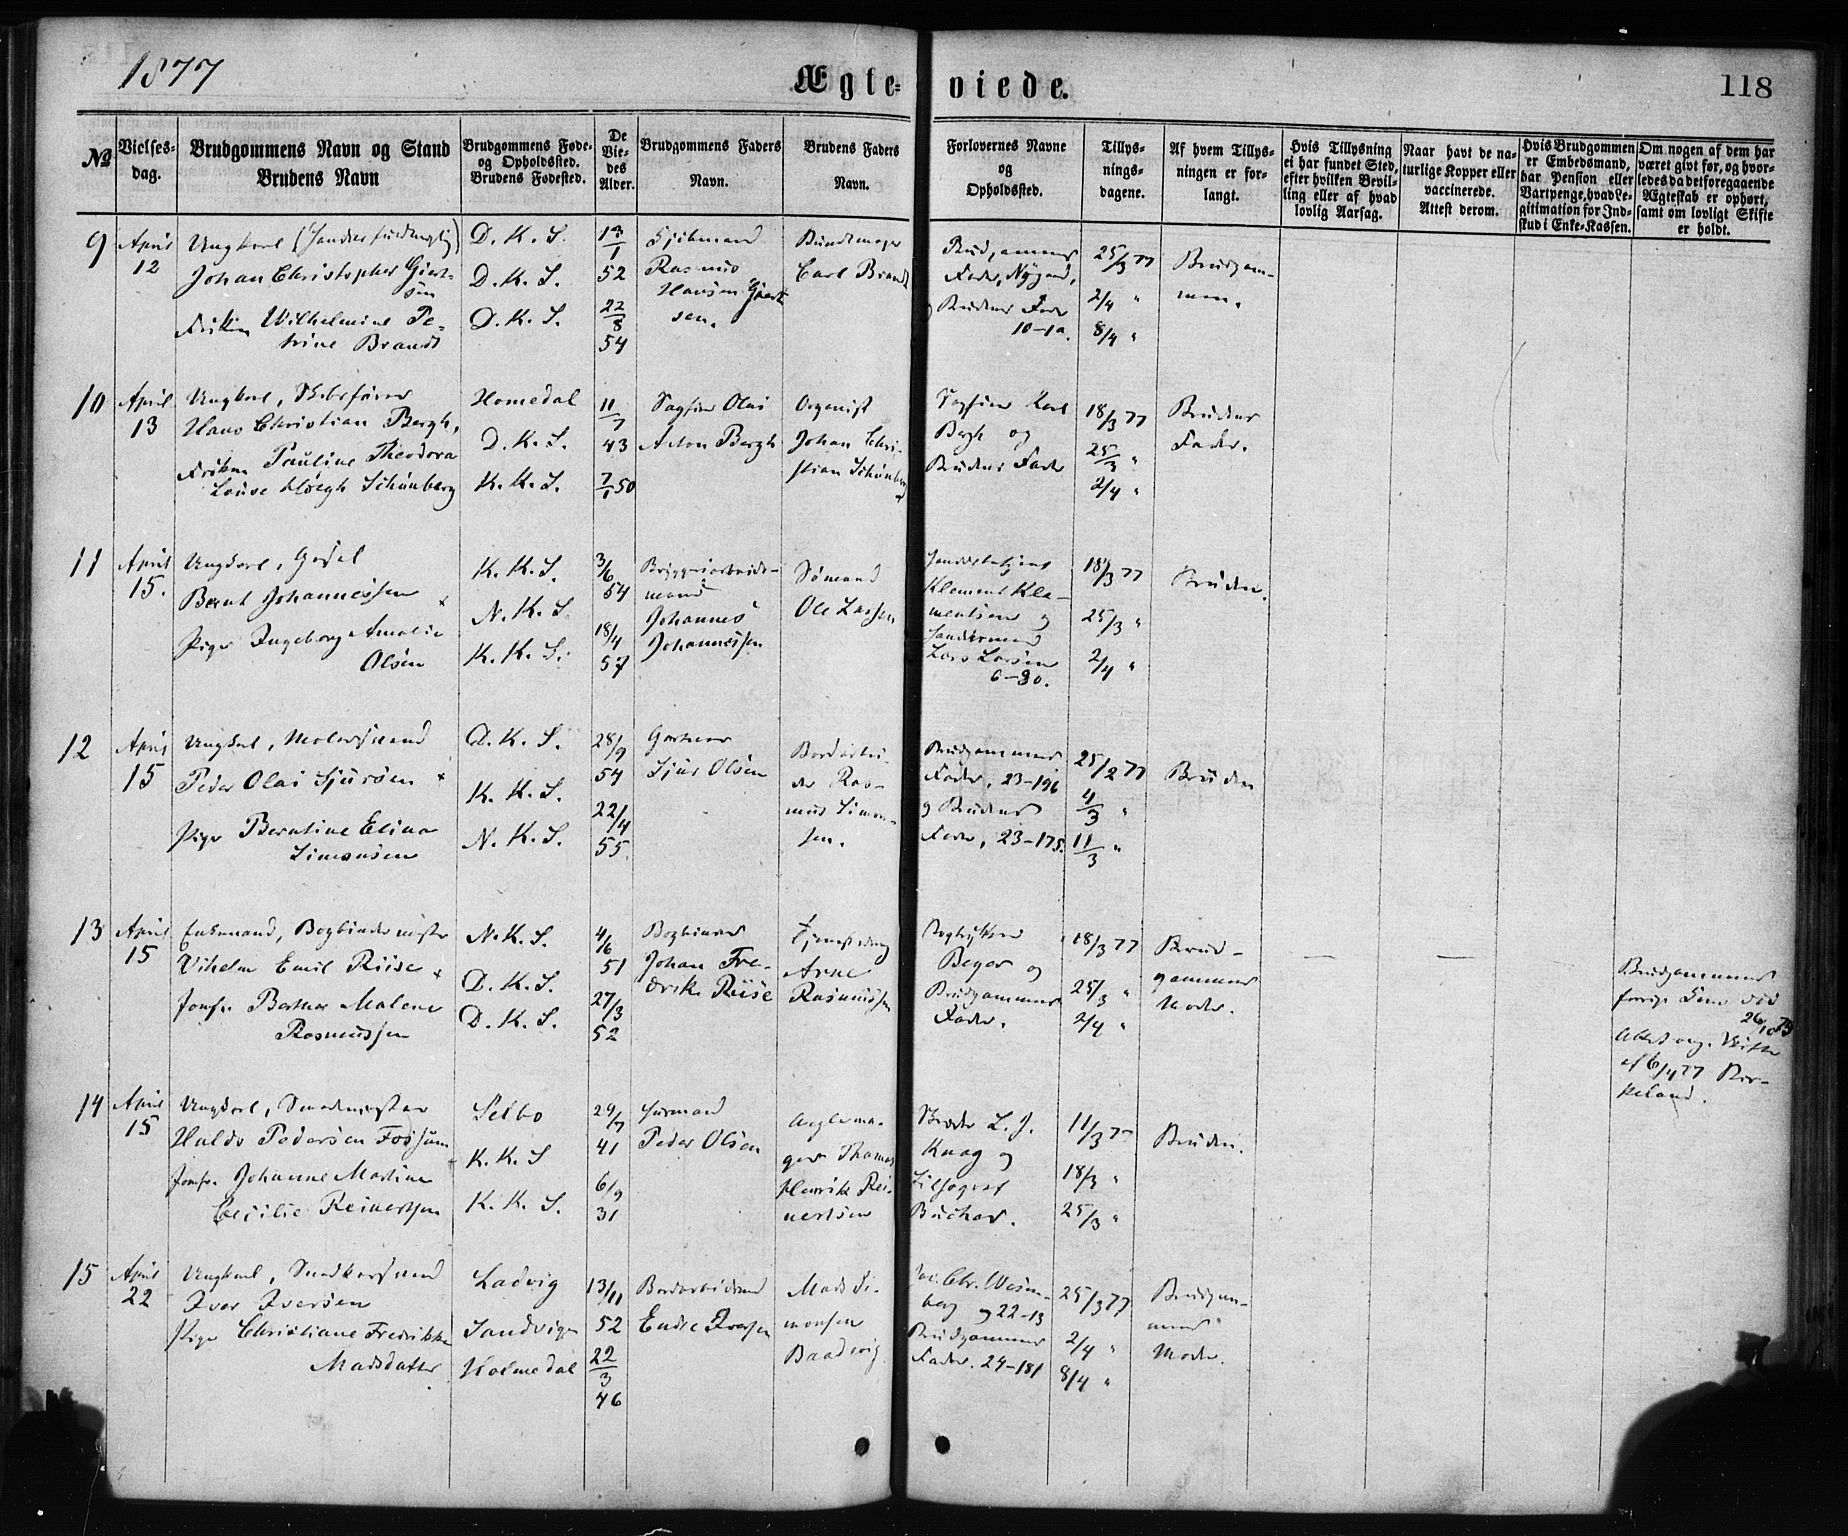 1877
Ægte-
viede.
118
№
Vielses-
dag.
Brudgommens Navn og Stand
Brudens Navn
Brudgommens Føde-
og Opholdssted.
Brudens Fødested.
De
Vie-
des
Alder.
Brudgommens Faders
Navn.
Brudens Faders
Navn.
Forlovernes Navne
og
Opholdssted.
Tillys-
nings-
dagene.
Af hvem Tillys-
ningen er for-
langt.
Hvis Tillysning
ei har fundet Sted,
efter hvilken Bevil-
ling eller af hvad
lovlig Aarsag.
Naar havt de na-
turlige Kopper eller
vaccinerede.
Attest derom.
Hvis Brudgommen
er Embedsmand,
har Pension eller
Vartpenge, hvad Le-
gitimation for Ind-
skud i Enke-Kassen.
Om nogen af dem har
været gift før, og hvor-
ledes da det foregaaende
Ægteskab er ophørt,
samt om lovligt Skifte
er holdt.
9
April
12
Ungkarl
Johan Christopher Gjert-
sen
Frøken Wilhelmine Pe-
trine Brandt
D. K. S.
D. K. S.
D. K. S.
13/1
52
22/8
54
Rasmus
Hansen Gjert-
sen.
Bundtmager
Carl Brandt
Brudgommens
Fader, Nygaard,
Brudens Fader
10-1a.
25/3 77
2/4 "
8/4 "
Brudgom-
men.
10
April
13
Ungkarl, Skibsfører
Hans Christian Bergh,
Frøken Pauline Theodora
Louise Høegh Schönberg
Homedal
D. K. S.
K. K. S.
11/7
43
7/1 50
Sagfører Olai
Anton Bergh
Organist
Johan Chri-
stian Schönberg
Sagfører Karl
Bergh og
Brudens Fader
18/3 77
25/3 "
2/4 "
Brudens
Fader.
11
April
15.
Ungkarl, Gesel
Bernt Johannessen
Pige Ingeborg Amalie
Olsen
K. K. S.
N. K. S.
K. K. S.
3/6
54
18/4
57
Bryggeriarbeids-
mand
Johannes
Johannessen
Sømand
Ole Larsen
Klement Kle-
mentsen og
Lars Larsen
6-30.
18/3 77
25/3 "
2/4 "
Bruden.
12
April
15
Ungkarl, Malersvend
Peder Olai Sjursen
Pige Berntine Elina
Simonsen
D. K. S.
K. K. S.
N. K. S.
28/9
54
22/4
55
Gartner
Sjur Olsen
Bordarbei-
der Ras-
mus Simon-
sen.
Brudgommens
Fader, 23-196
og Brudens
Fader, 23-175.
25/2 77
4/3 "
11/3 "
Bruden
13
April
15
Enkemand, Bogbindermester
Vilhelm Emil Riise
Jomfr. Berthe Malene
Rasmussen
N. K. S.
D. K. S.
D. K. S.
4/6
51
27/3
52
Bogbinder
Johan Fre-
drik Riise
Arne
Rasmussen
Bogtrykker
Beyer og
Brudgommens
Fader.
18/3 77
25/3 "
2/4 "
Brud-
gommens
Moder.
Brudgommens
forrige Kone død
26/10 75
Attest ang. Skifte
af 6/4 77 Bir-
keland.
14
April
15
Ungkarl, Smedmester
Haldo Pedersen Fossum
Jomfr. Johanne Martine
Cecilie Reinertsen
Selbo
K. K. S
K. K. S.
29/7
41
6/9
31
Peder Olsen
Uhrma-
ger Thomas
Henrik Rei-
nertsen
L. J.
Knag og
Litograf
Bucher.
11/3 77
18/3 "
25/3 "
Bruden.
15
April
22
Ungkarl, Snedkersvend
Iver Iversen
Pige Christiane Fredrikke
Madsdatter
Ladvig
Sandvigen
Holmedal
13/11
52
22/3
46
Bordarbeidsmd
Endre Iversen
Mads Si-
monsen
Baadsvig
Chr. Wesen-
berg og 22-13
Brudgommens
Fader. 24-181
25/3 77
2/4 "
8/4 "
Brudgom-
mens
Moder.